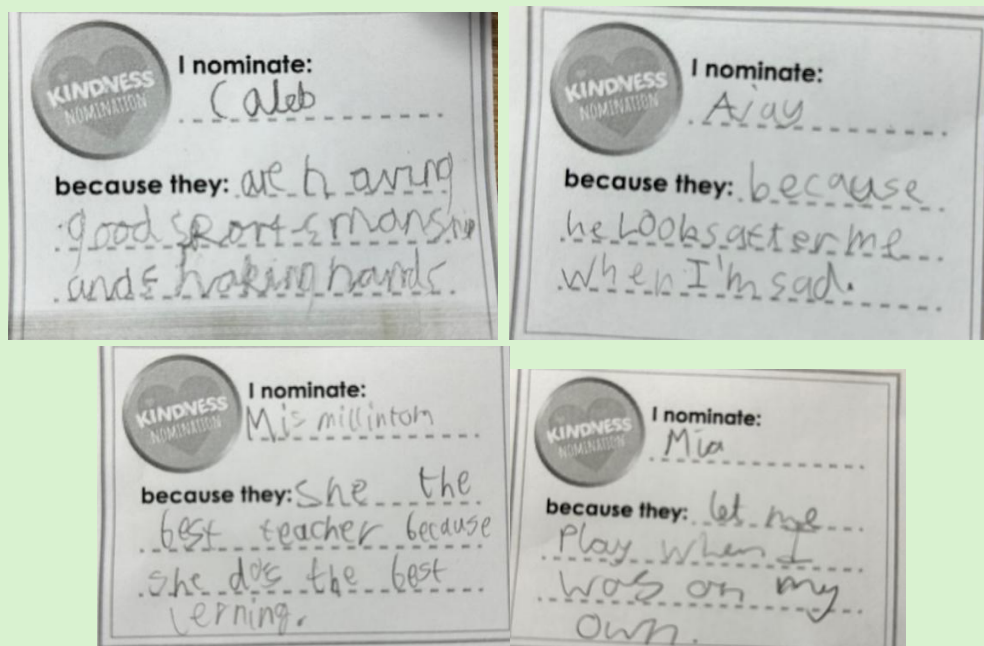 KINDNESS
NOMINATION
I nominate:
Caleb
because they: are having
good sportsmanship
and shaking hands.
KINDNESS
NOMINATION
I nominate:
Ajay
because they: because
he Looks after me
when I'm sad.
KINDNESS
NOMINATION
I nominate:
Mis millintom
because they: She the
best teacher because
she do's the best
lerning.
KINDNESS
NOMINATION
I nominate:
Mia
because they: let me
Play when I
was on my
own.